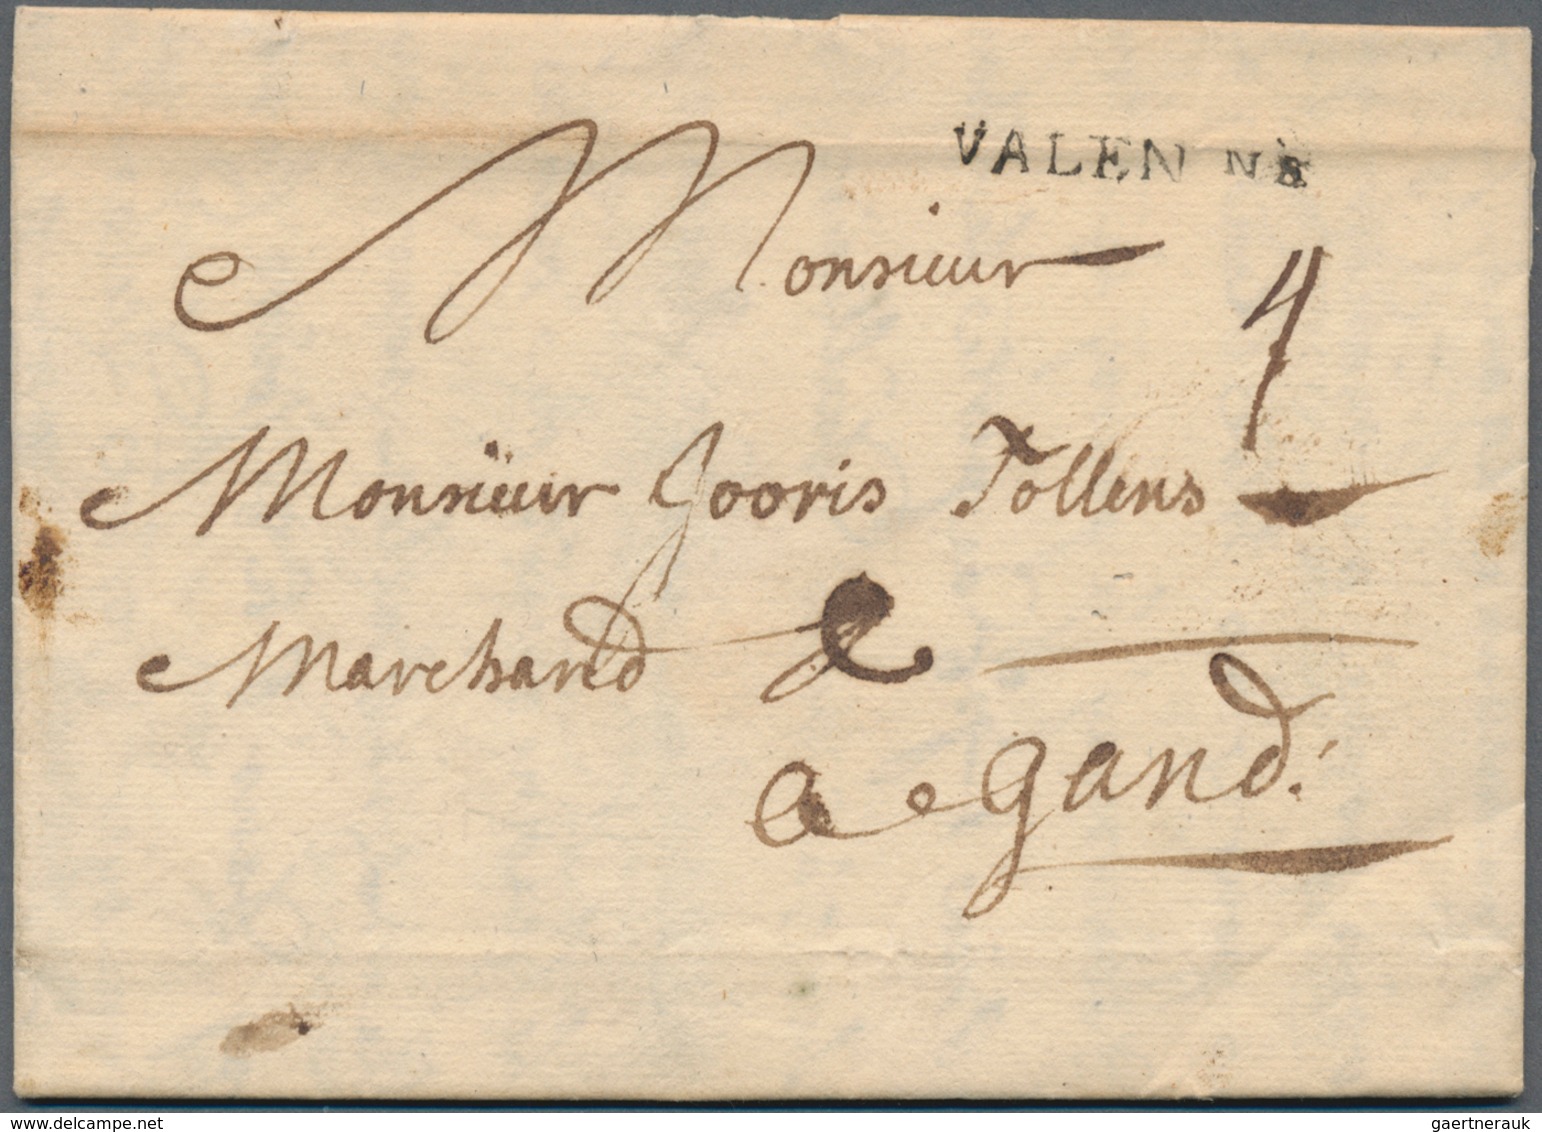 VALEN NE
Monsieur
4
Monsieur Jooris Tollens
Marchand
a gand.
www.delcampe.net
gaertnerauk